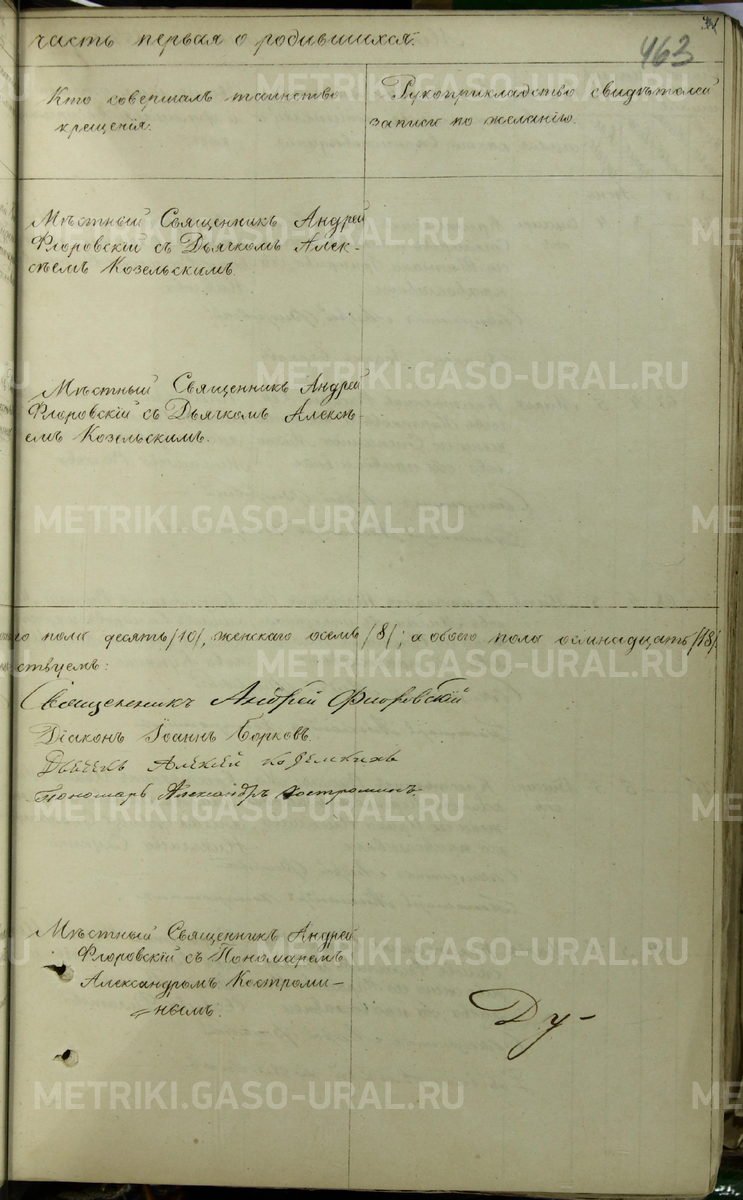 часть первая о родившихся.
463
Кто совершалъ таинство
крещенія.
Рукоприкладство свидѣтелей
записи по желанію.
Мѣстный Священникъ Андрей
Флоровскій съ Дьячкомъ Алек-
сѣемъ Козельскимъ.
Мѣстный Священникъ Андрей
Флоровскій съ Дьячкомъ Алексѣ-
емъ Козельскимъ.
го пола десять /10/, женскаго осемь /8/; а обоего пола осмнадцать /18/.
ствуемъ:
Священникъ Андрей Флоровскій
Діаконъ Іоаннъ Борковъ.
Алексей
Пономарь Александръ Костроминъ.
Мѣстный Священникъ Андрей
Флоровскій съ Пономаремъ
Александромъ Костроми-
нымъ.
Ду-
METRIKI.GASO-URAL.RU